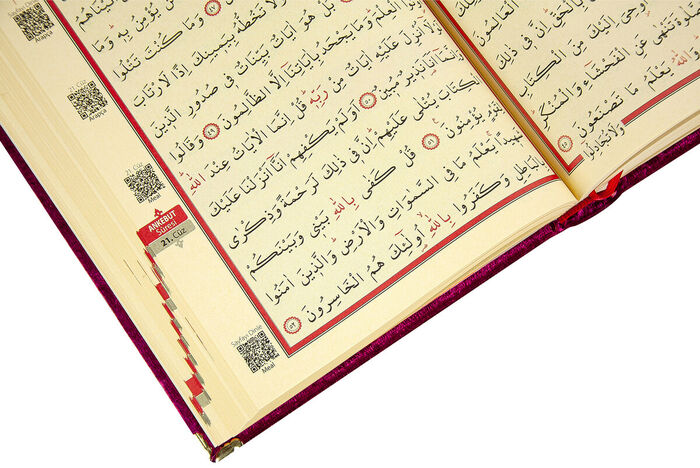 بِالْحَقِّ اِنَّ فِي ذٰلِكَ
اُوحِيَ اِلَيْكَ مِنَ الْكِتَابِ
تَنْهٰى عَنِ الْفَحْشَاءِ وَالْمُنْكَرِ
اللّٰهُ يَعْلَمُ مَا تَصْنَعُونَ ٤٥
وَلَا تُجَادِلُوا
مَنْ يُؤْمِنُ بِهِ وَمَا
٤٧ وَمَا كُنْتَ تَتْلُوا
وَلَا تَخُطُّهُ بِيَمِينِكَ اِذًا لَارْتَابَ
بَلْ هُوَ اٰيَاتٌ بَيِّنَاتٌ فِي صُدُورِ الَّذِينَ
الْعِلْمَ وَمَا يَجْحَدُ بِاٰيَاتِنَا اِلَّا الظَّالِمُونَ ٤٩ وَقَالُوا
اُنْزِلَ عَلَيْهِ اٰيَاتٌ مِنْ رَبِّهِ قُلْ اِنَّمَا الْاٰيَاتُ عِنْدَ اللّٰهِ
وَاِنَّمَا اَنَا نَذِيرٌ مُبِينٌ ٥٠ اَوَلَمْ يَكْفِهِمْ اَنَّا اَنْزَلْنَا عَلَيْكَ
الْكِتَابَ يُتْلٰى عَلَيْهِمْ اِنَّ فِي ذٰلِكَ لَرَحْمَةً وَذِكْرٰى
يُؤْمِنُونَ ٥١ قُلْ كَفٰى بِاللّٰهِ بَيْنِي وَبَيْنَكُمْ
شَهِيدًا يَعْلَمُ مَا فِي السَّمٰوَاتِ وَالْاَرْضِ وَالَّذِينَ اٰمَنُوا
بِالْبَاطِلِ وَكَفَرُوا بِاللّٰهِ اُولٰئِكَ هُمُ الْخَاسِرُونَ ٥٢
Arapça
21. Cüz
Arapça
21. Cüz
Meal
ANKEBUT
Sûresi
21. Cüz
Sayfayı Dinle
Meal